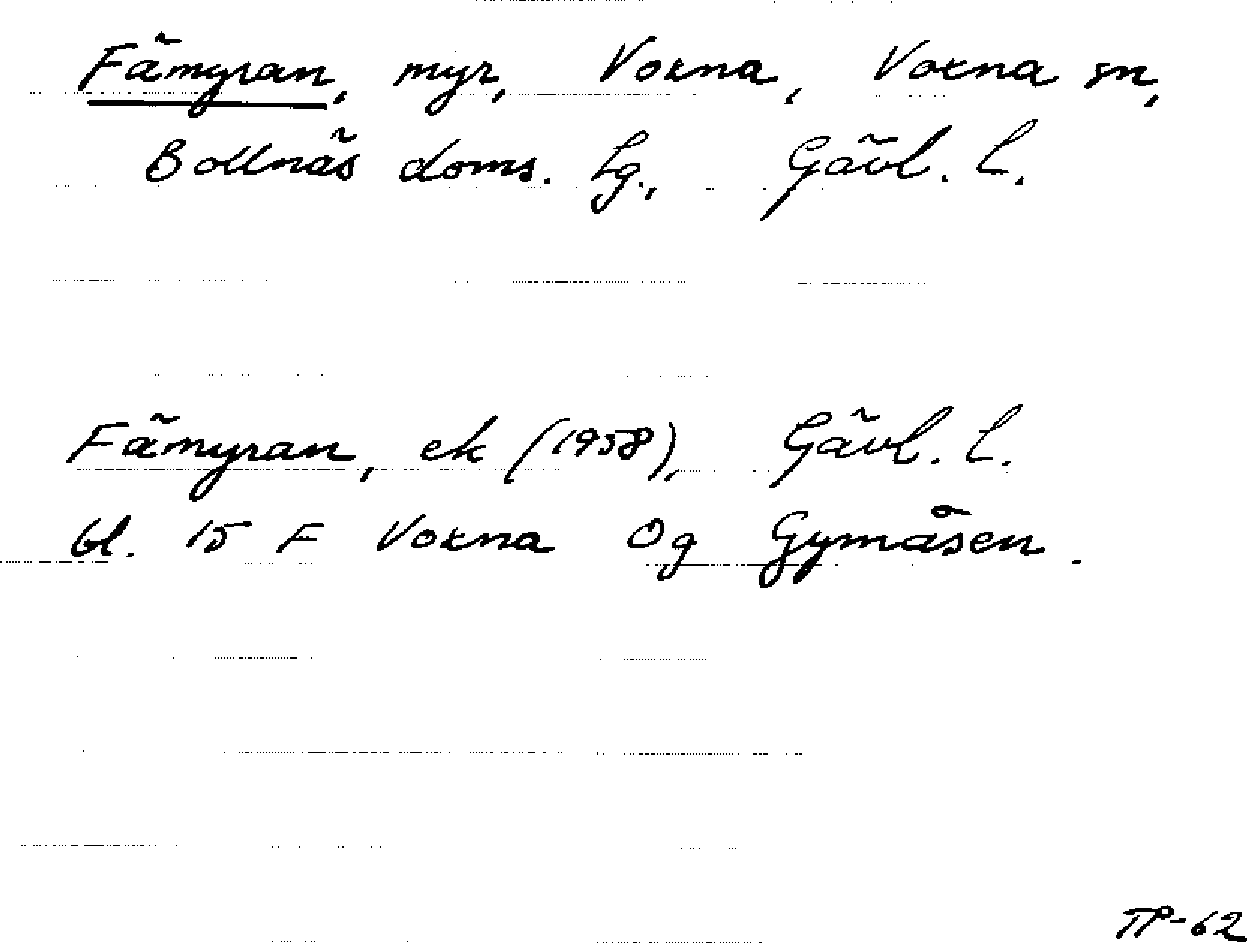 Fämyran, myr, Voxna, Voxna sn,
Bollnäs doms. lg., Gävl. l.
Fämyran, ek (1958), Gävl. l.
bl. 15 F Voxna Og Gymåsen.
TP-62